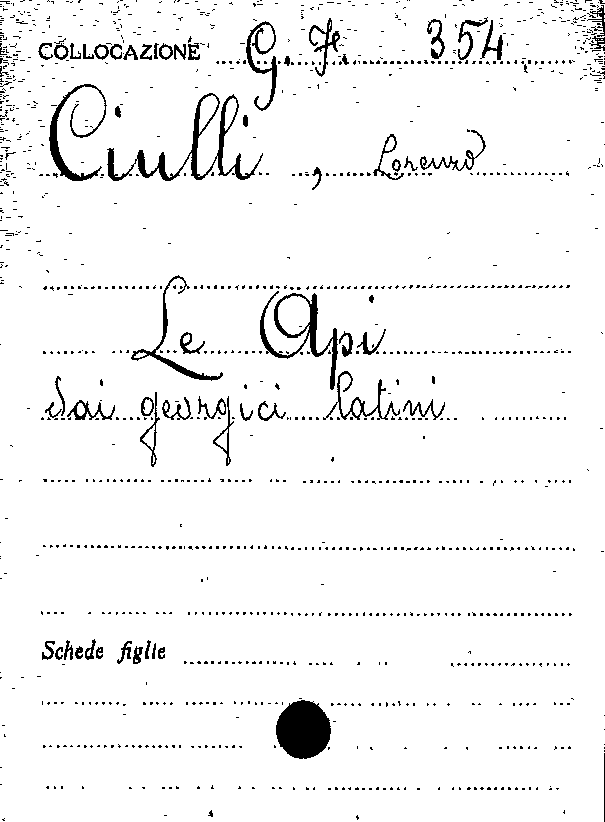 COLLOCAZIONE G. F. 354
Ciulli, Lorenzo
Le Api
dai georgici latini
Schede figlie